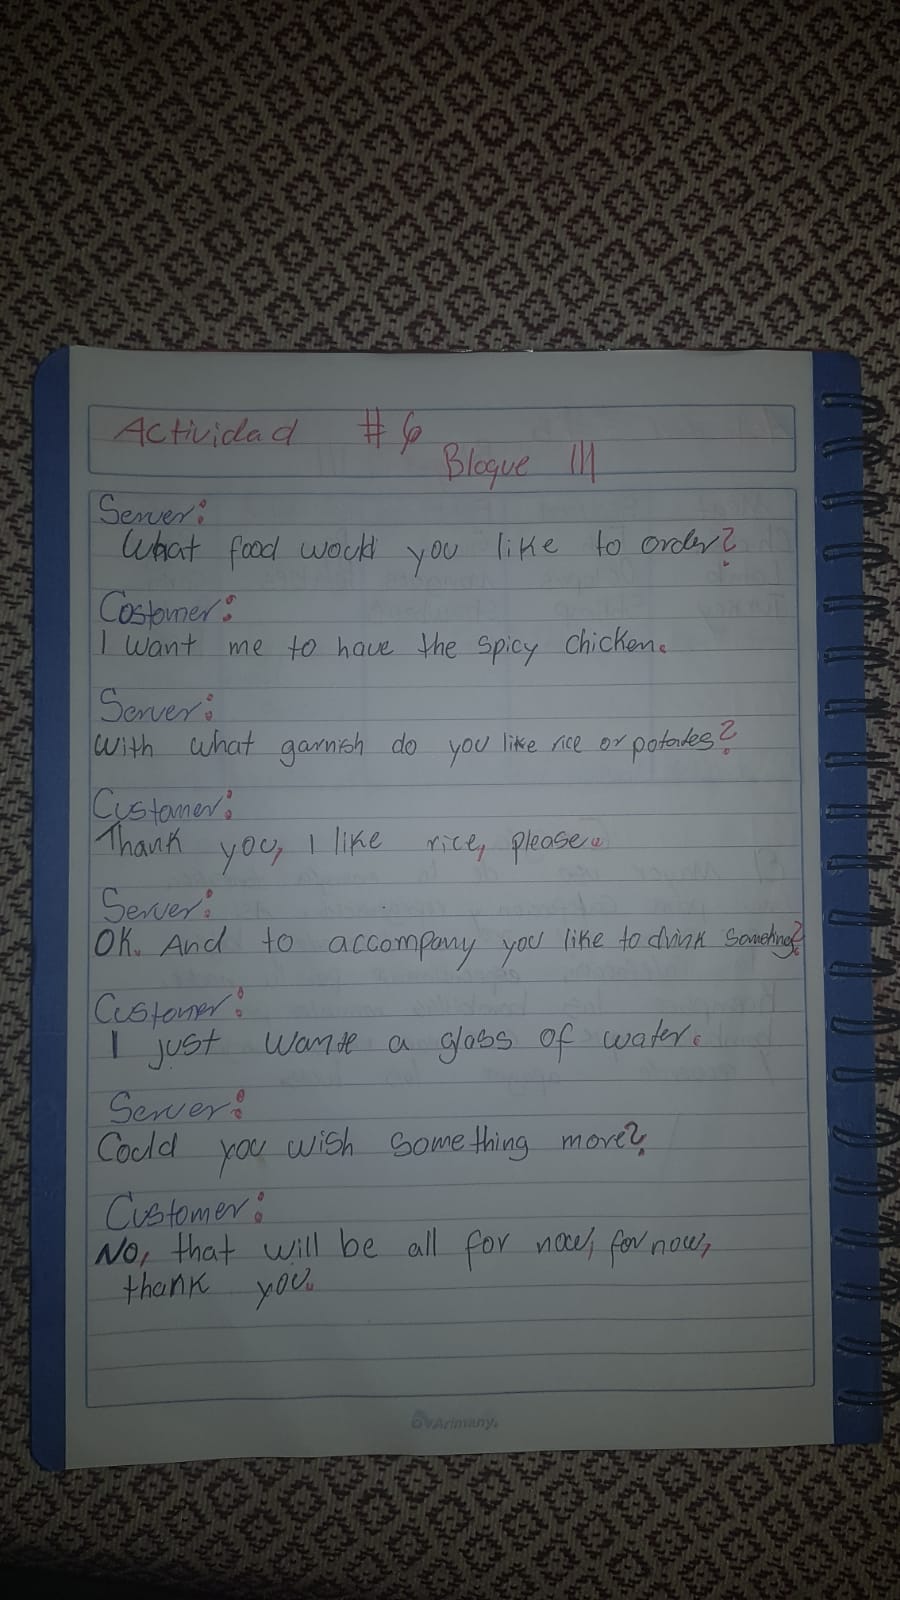 Actividad # 6
Bloque III
Server:
What food would you like to order?
Costomer:
I want me to have the spicy chicken.
Server:
With what garnish do you like rice or potatoes?
Customer:
Thank you, I like rice, please.
Server:
OK. And to accompany you like to drink something?
Customer:
I just wante a glass of water.
Server:
Could you wish something more?
Customer:
No, that will be all for now, for now,
thank you.
Arimany.